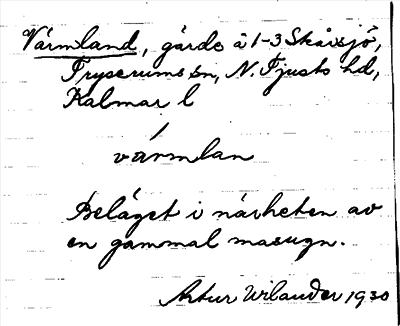 Värmland, gärde å 1-3 Skårsjö,
Tryserums sn, N. Tjusts hd,
Kalmar l
värmlan
Beläget i närheten av
en gammal masugn.
Artur Wilander 1930